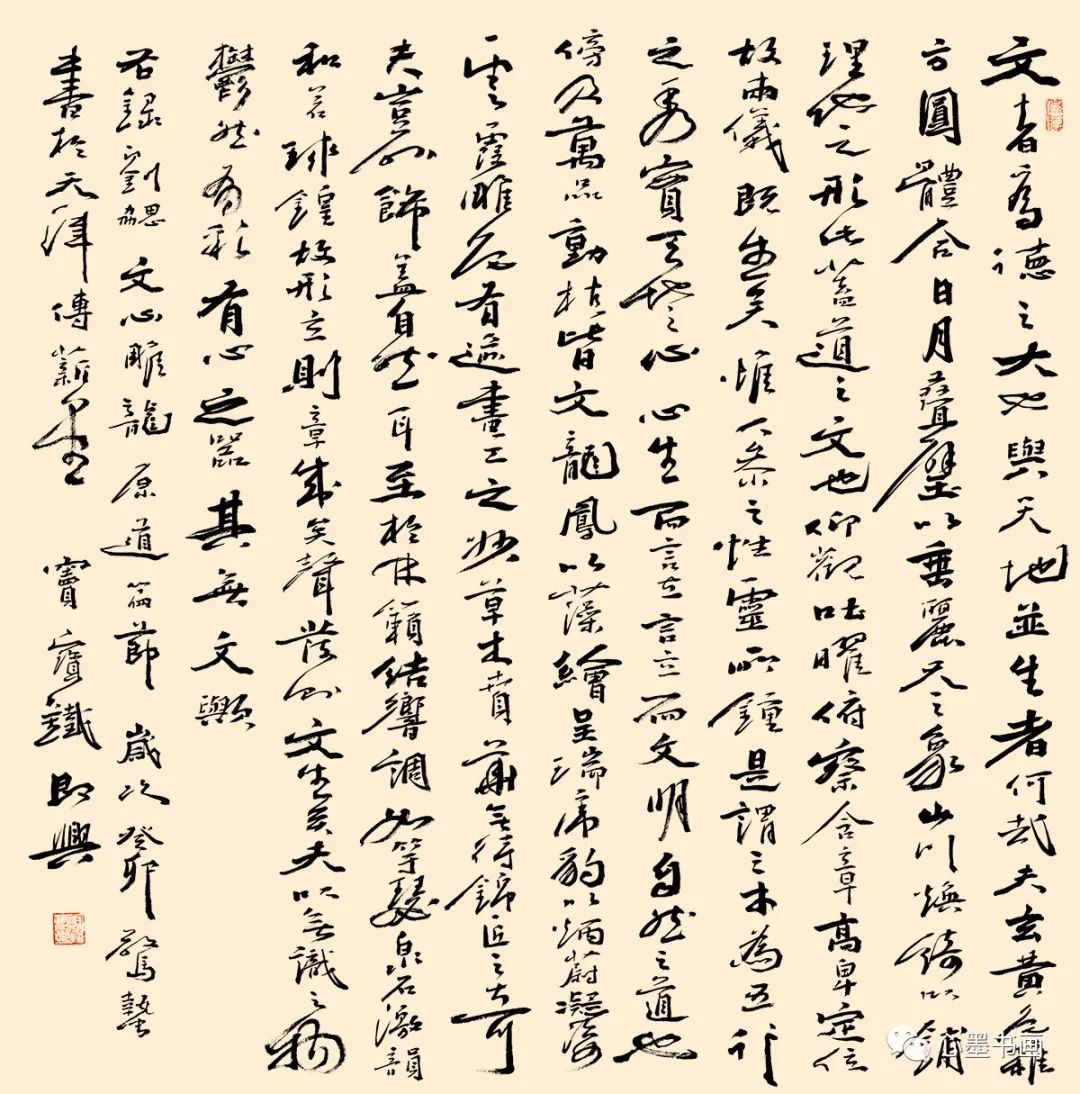 文者為德之大也與天地並生者何哉夫玄黃色雜
方圓體合日月疊璧以垂麗天之象山川煥綺以鋪
理地之形此蓋道之文也仰觀吐曜俯察含章高卑定位
故兩儀既生矣惟人參之性靈所鍾是謂三才為五行
之秀實天地之心心生而言立言立而文明自然之道也
傍及萬品動植皆文龍鳳以藻繪呈瑞虎豹以炳蔚凝姿
雲霞雕色有逾畫工之妙草木賁華無待錦匠之奇
夫豈外飾蓋自然耳至於林籟結響調如竽瑟泉石激韻
和若球鍠故形立則章成矣聲發則文生矣夫以無識之物
鬱然有彩有心之器其無文歟
右錄劉勰文心雕龍原道篇節歲次癸卯驚蟄
書於天津傳薪堂竇寶鐵即興
墨书画